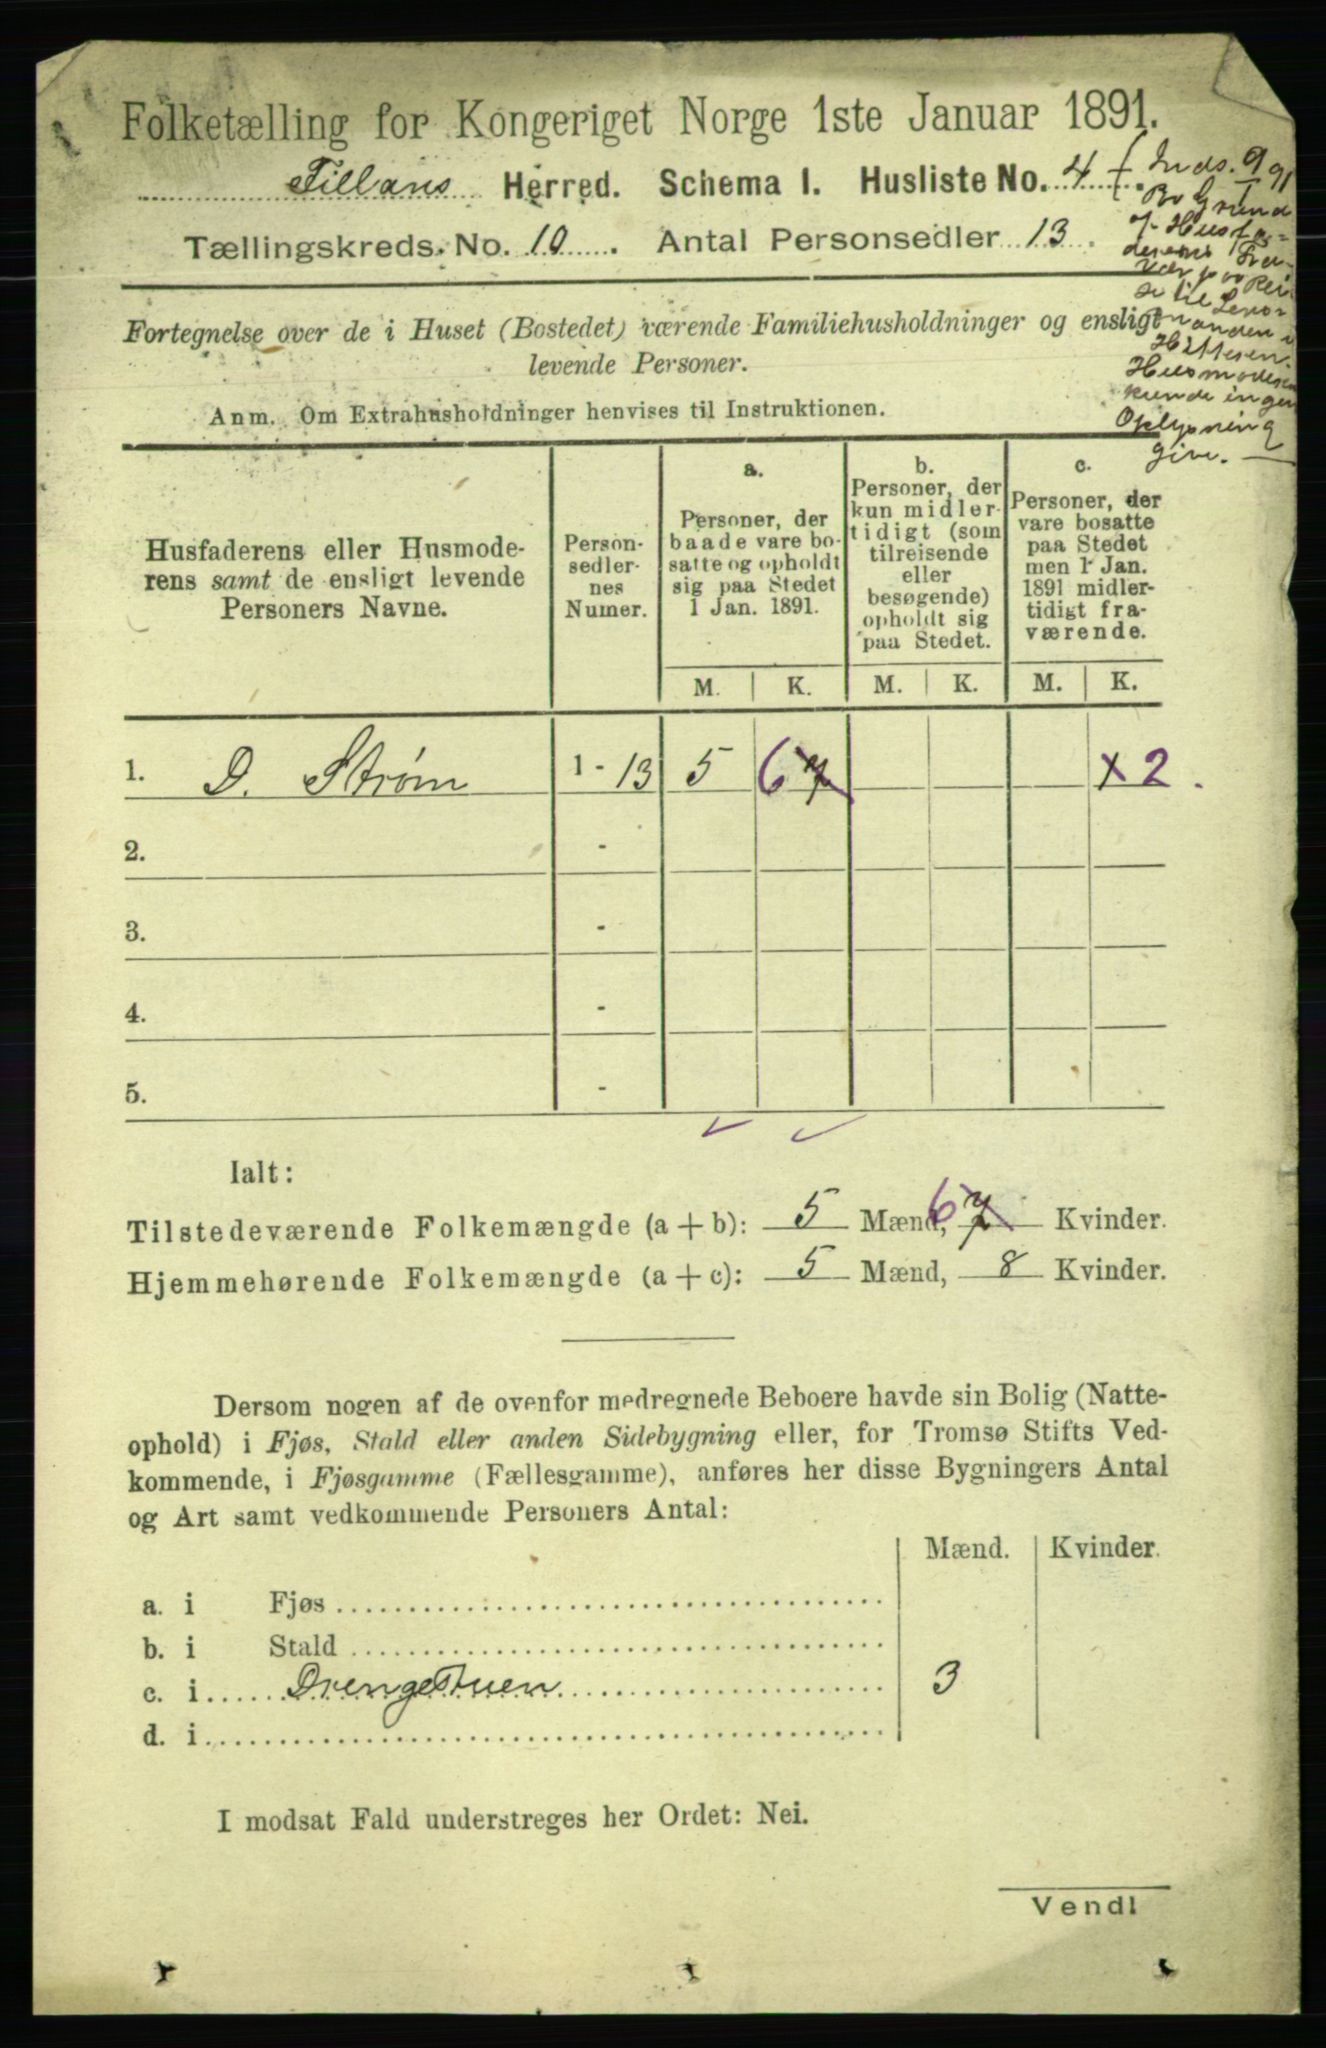 Folketælling for Kongeriget Norge 1ste Januar 1891.
Fillans Herred. Schema 1. Husliste No. 4
Tællingskreds. No. 10. Antal Personsedler 13.
Inds. 9/1 91
Grund
af Husfa-
derens Fra-
vær paa Rei-
se til
Hitteren.
Husmoderen
kunde ingen
Oplysning
give.
Fortegnelse over de i Huset (Bostedet) værende Familiehusholdninger og ensligt
levende Personer.
Anm. Om Extrahusholdninger henvises til Instruktionen.
Husfaderens eller Husmode-
rens samt de ensligt levende
Personers Navne.
Person-
sedler-
nes
Numer.
a.
Personer, der
baade vare bo-
satte og opholdt
sig paa Stedet
1 Jan. 1891.
b.
Personer, der
kun midler-
tidigt (som
tilreisende
eller
besøgende)
opholdt sig
paa Stedet.
c.
Personer, der
vare bosatte
paa Stedet
men 1 Jan.
1891 midler-
tidigt fra-
værende.
M. K. M. K. M. K.
1. D. Strøm 1 - 13 5 6 7 x 2.
2. -
3. -
4. -
5. -
Ialt:
Tilstedeværende Folkemængde (a + b): 5 Mænd, 6 7 Kvinder.
Hjemmehørende Folkemængde (a + c): 5 Mænd, 8 Kvinder.
Dersom nogen af de ovenfor medregnede Beboere havde sin Bolig (Natte-
ophold) i Fjøs, Stald eller anden Sidebygning eller, for Tromsø Stifts Ved-
kommende, i Fjøsgamme (Fællesgamme), anføres her disse Bygningers Antal
og Art samt vedkommende Personers Antal:
Mænd. Kvinder.
a. i Fjøs
b. i Stald
c. i Drengestuen 3
d. i
I modsat Fald understreges her Ordet: Nei.
Vend!